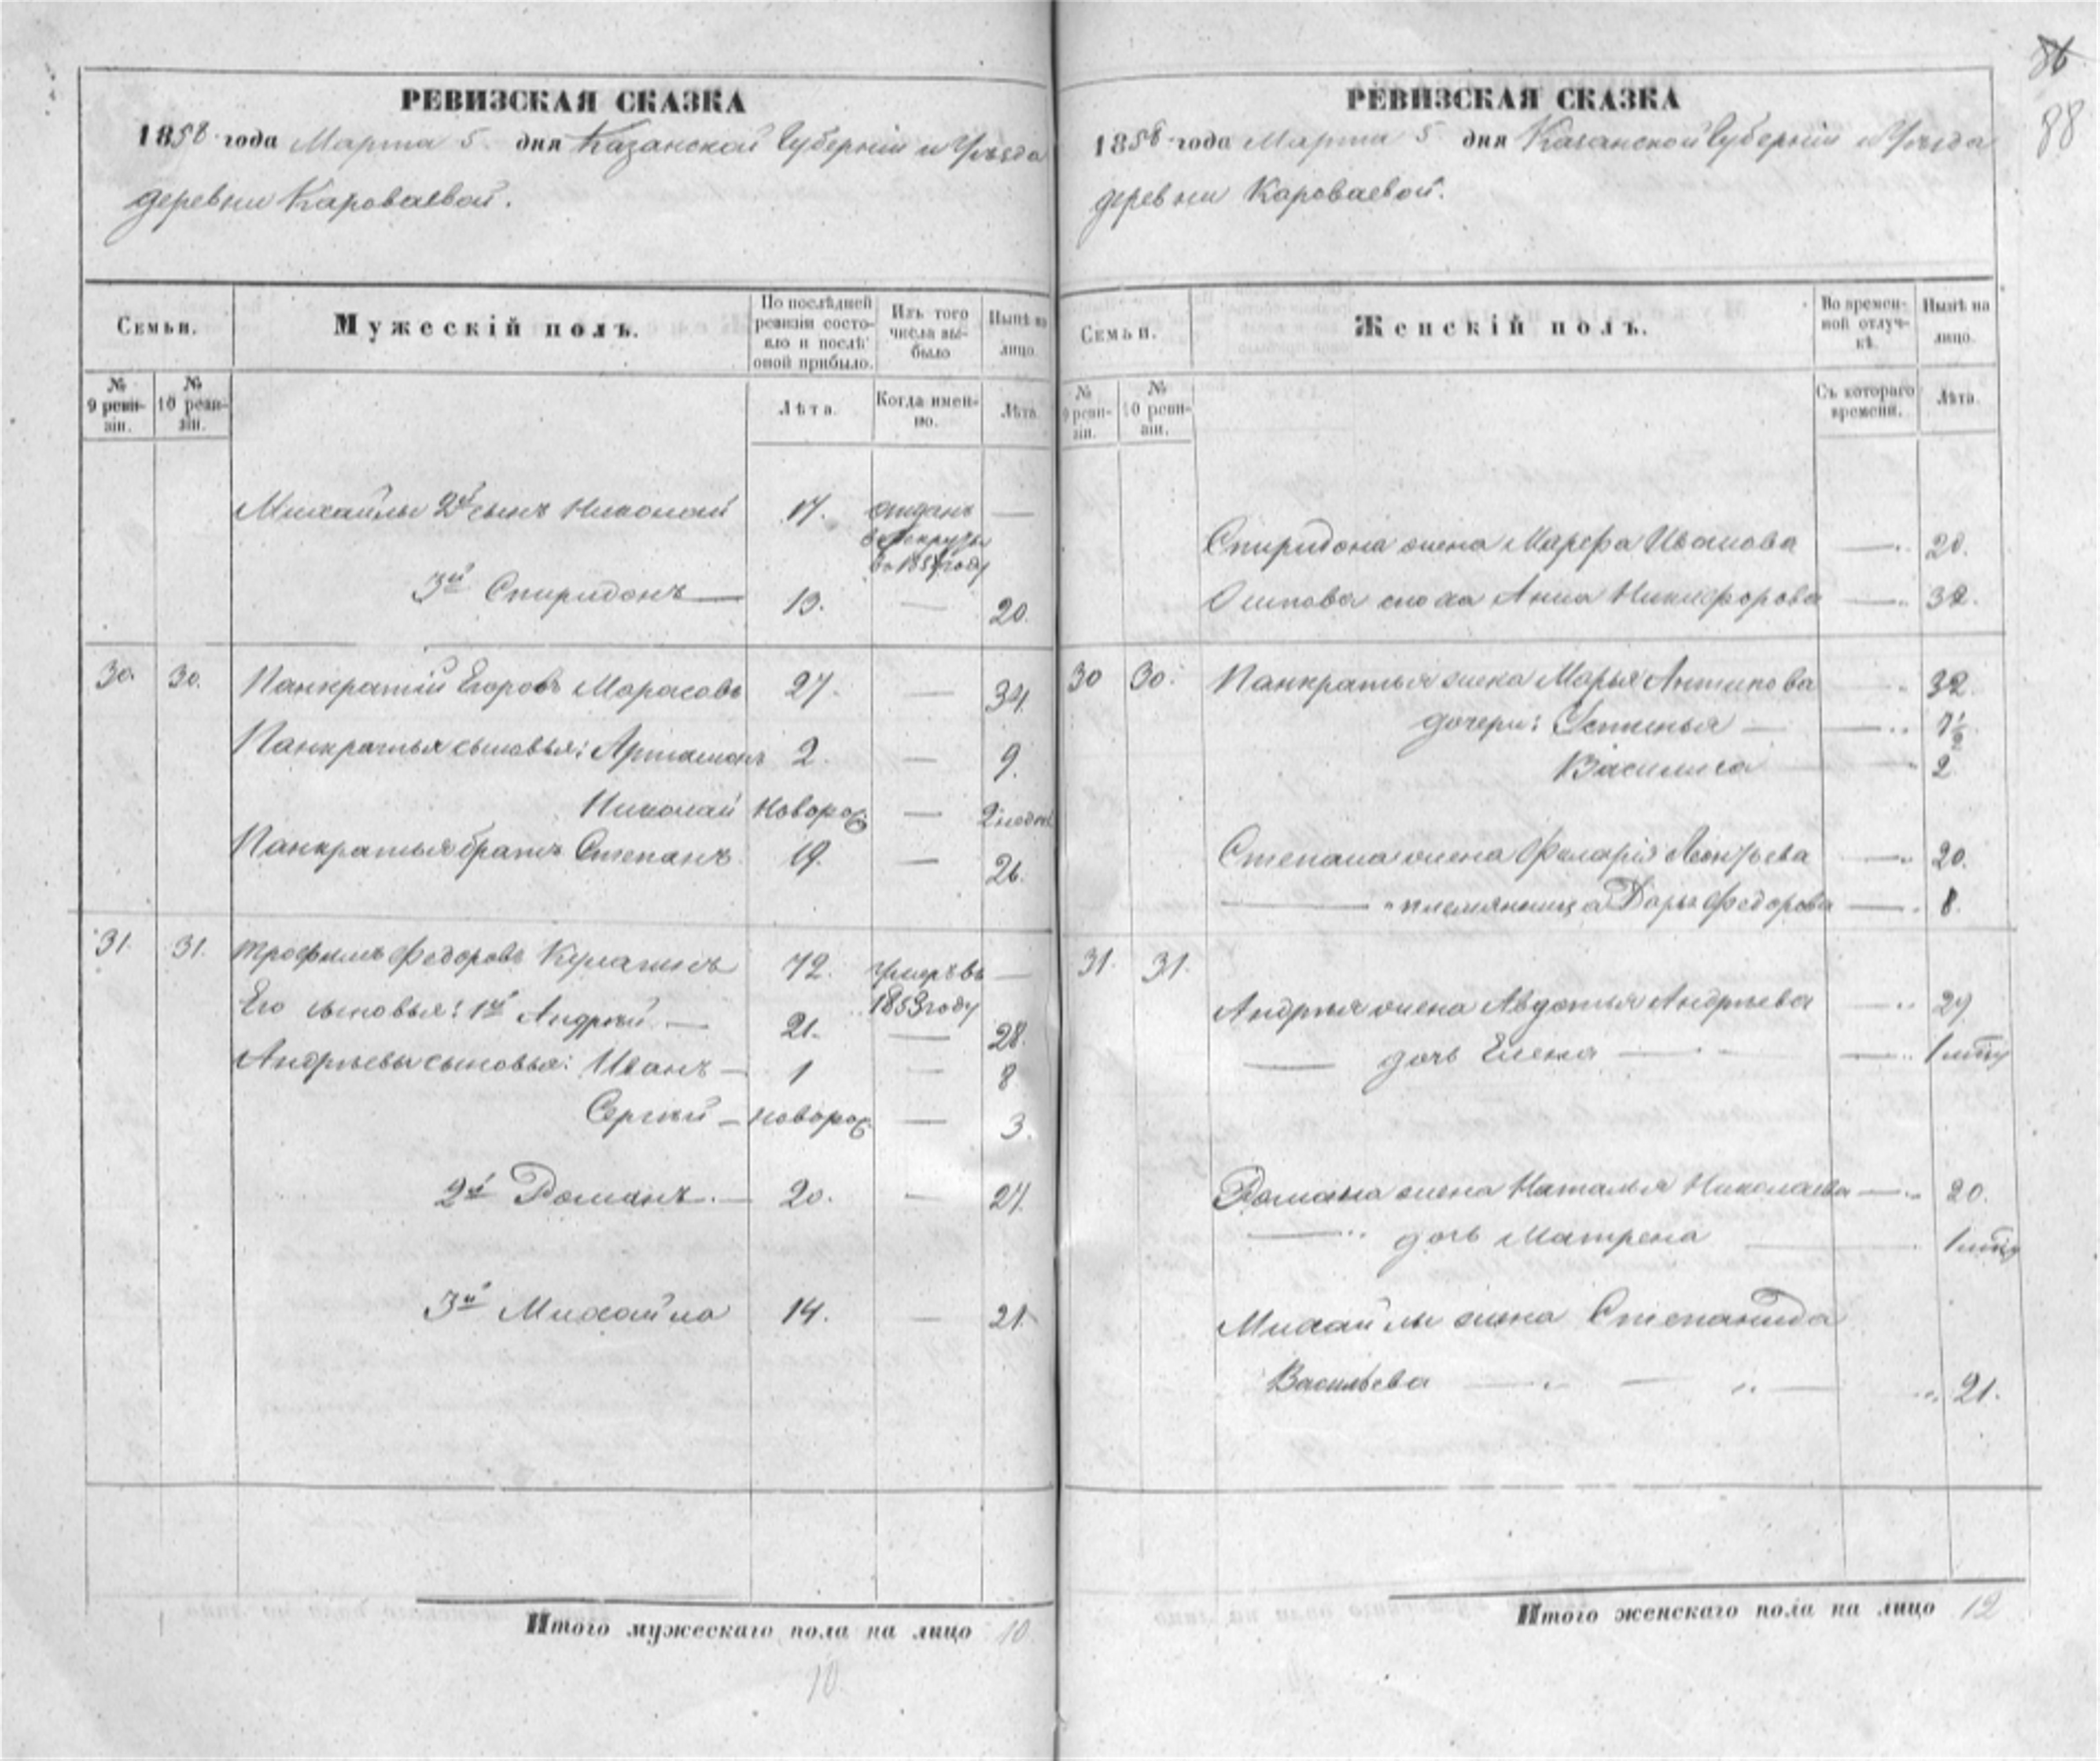 86
88
РЕВИЗСКАЯ СКАЗКА
1858 года Марта 5. дня Казанской Губерніи и Уѣзда
деревни Кароваевой.
Семьи.
Мужескій полъ.
По послѣдней ревизіи состояло и послѣ оной прибыло.
Изъ того числа выбыло
Нынѣ на лицо.
№ 9 ревизіи.
№ 10 ревизіи.
Лѣта.
Когда именно.
Лѣта.
Михайлы 2й сынъ Николай 17. отданъ —
в рекруты
в 185 году
3й Спиридонъ — 13. — 20.
30. 30. Панкратій Егоровъ Марасовъ 27. — 34.
Панкратья сыновья: Артамонъ 2. — 9.
Николай новорож. — 2 недѣл.
Панкратья братъ Степанъ 19. — 26.
31. 31. Трофимъ Федоровъ Кулагинъ 72. умеръ въ —
1853 году
Его сыновья: 1й Андрей — 21. — 28.
Андреевы сыновья: Иванъ — 1 — 8
Сергѣй — новорож. — 3.
2й Романъ. — 20. — 27.
3й Михайло 14. — 21.
Итого мужескаго пола на лицо 10
10.
РЕВИЗСКАЯ СКАЗКА
1858 года Марта 5 дня Казанской Губерніи и Уѣзда
деревни Кароваевой.
Семьи.
Женскій полъ.
Во временной отлучкѣ.
Нынѣ на лицо.
№ 9 ревизіи.
№ 10 ревизіи.
Съ котораго времени.
Лѣта.
Спиридона жена Марфа Иванова — 20.
Осипова сноха Анна Никифорова — 32.
30 30. Панкратья жена Марья Антипова — 32.
дочери: Устинья — — 7 1/2
Василиса — 2
Степана жена Леонтьева — 20.
— племянница Дарья Федорова — 8.
31. 31.
Андрея жена Авдотья Андреева — 29
— дочь Елена — — 1 литу
Романа жена Наталья Николаева — 20.
— дочь Матрена — 1 литу
Михайлы жена Степанида
Васильева — — — 21.
Итого женскаго пола на лицо 12